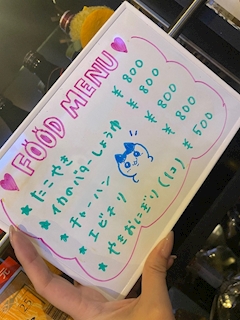 FOOD MENU
★ たこやき ¥800
★ イカのバターしょうゆ ¥800
★ チャーハン ¥800
★ エビチリ ¥800
★ やきおにぎり(1コ) ¥500